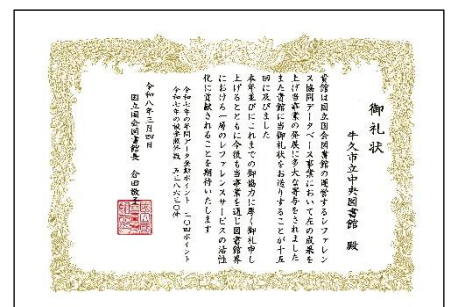 御礼状
牛久市立中央図書館 殿
貴館は国立国会図書館の運営するレファレン
ス協同データベース事業において左の成果を
上げ当事業の発展に多大な寄与をされました
また貴館に当御礼状をお送りすることが十五
回に及びました
本年並びにこれまでの御協力に厚く御礼申し
上げるとともに今後も当事業を通じ図書館界
における一層のレファレンスサービスの活性
化に貢献されることを期待いたします
令和七年の年間データ登録ポイント 二〇四ポイント
令和七年の被参照件数
令和八年二月四日
国立国会図書館長 倉田敬子